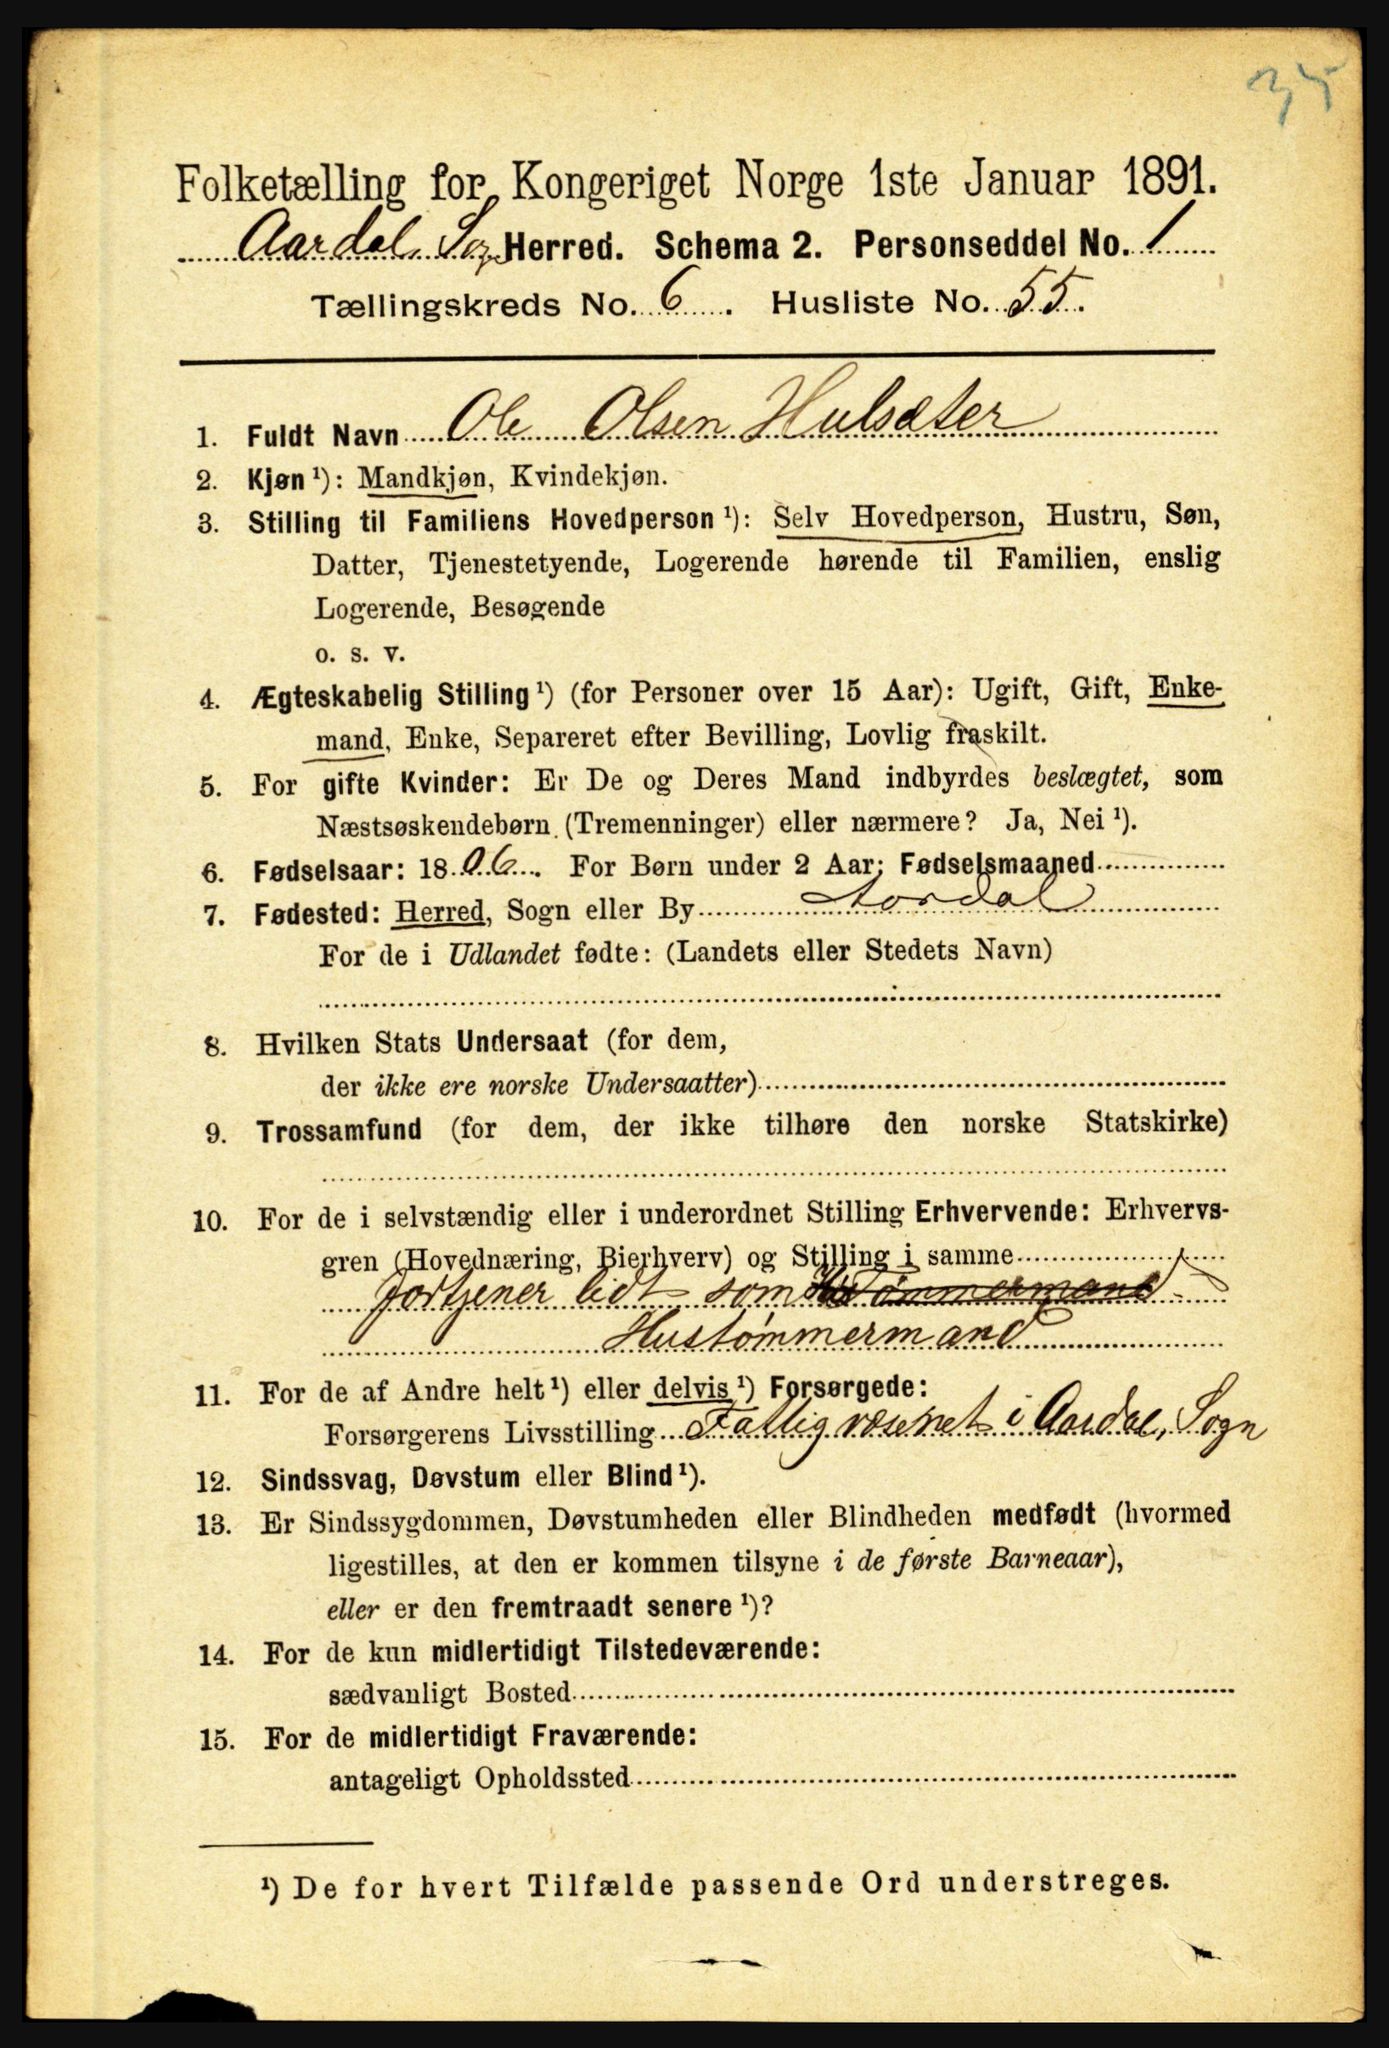 35
Folketælling for Kongeriget Norge 1ste Januar 1891.
Aardal, Sogn Herred. Schema 2. Personseddel No. 1
Tællingskreds No. 6. Husliste No. 55.
1. Fuldt Navn Ole Olsen Hulsæter
2. Kjøn ¹): Mandkjøn, Kvindekjøn.
3. Stilling til Familiens Hovedperson ¹): Selv Hovedperson, Hustru, Søn,
Datter, Tjenestetyende, Logerende hørende til Familien, enslig
Logerende, Besøgende
o. s. v.
4. Ægteskabelig Stilling ¹) (for Personer over 15 Aar): Ugift, Gift, Enke-
mand, Enke, Separeret efter Bevilling, Lovlig fraskilt.
5. For gifte Kvinder: Er De og Deres Mand indbyrdes beslægtet, som
Næstsøskendebørn (Tremenninger) eller nærmere? Ja, Nei ¹).
6. Fødselsaar: 1806. For Børn under 2 Aar: Fødselsmaaned
7. Fødested: Herred, Sogn eller By Aordal
For de i Udlandet fødte: (Landets eller Stedets Navn)
8. Hvilken Stats Undersaat (for dem,
der ikke ere norske Undersaatter)
9. Trossamfund (for dem, der ikke tilhøre den norske Statskirke)
10. For de i selvstændig eller i underordnet Stilling Erhvervende: Erhvervs-
gren (Hovednæring, Bierhverv) og Stilling i samme
fortjener lidt som Tømmermand
Hustømmermand
11. For de af Andre helt ¹) eller delvis ¹) Forsørgede:
Forsørgerens Livsstilling Fattigvæsenet i Aardal, Sogn
12. Sindssvag, Døvstum eller Blind ¹).
13. Er Sindssygdommen, Døvstumheden eller Blindheden medfødt (hvormed
ligestilles, at den er kommen tilsyne i de første Barneaar),
eller er den fremtraadt senere ¹)?
14. For de kun midlertidigt Tilstedeværende:
sædvanligt Bosted
15. For de midlertidigt Fraværende:
antageligt Opholdssted
¹) De for hvert Tilfælde passende Ord understreges.